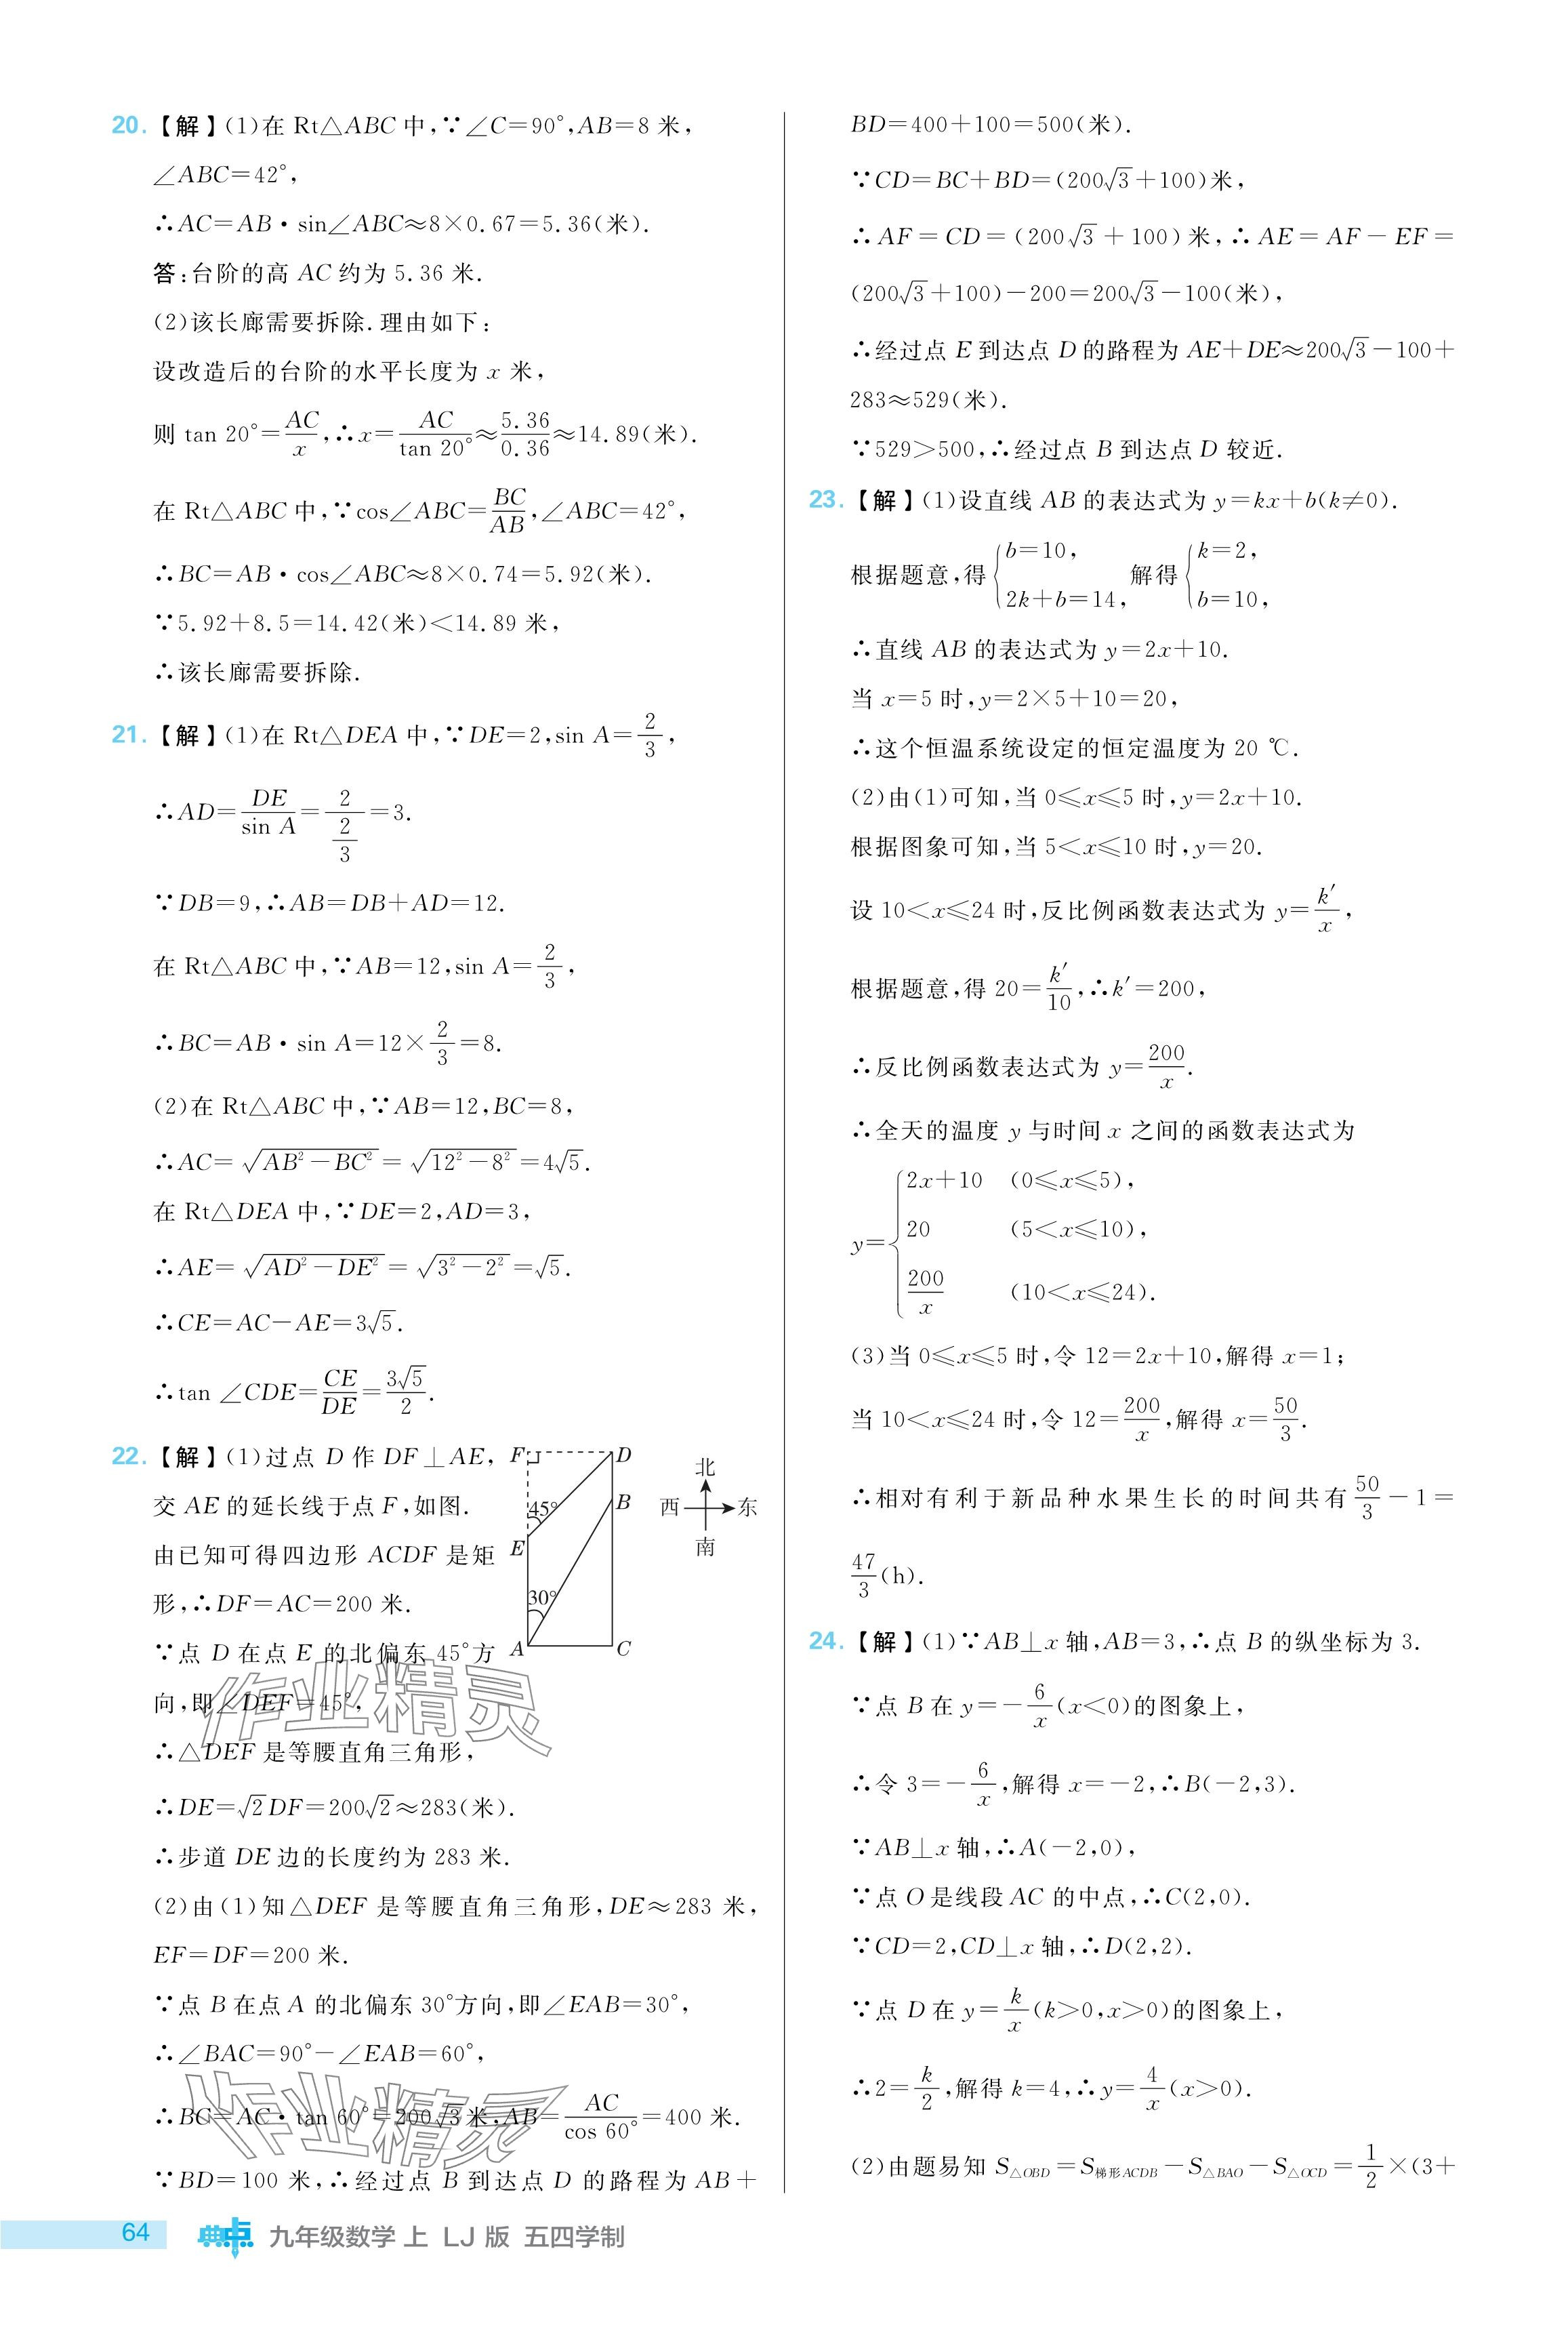 20.【解】(1)在 Rt△ABC 中,∵∠C=90°,AB=8 米,
∠ABC=42°,
∴AC=AB·sin∠ABC≈8×0.67=5.36(米).
答:台阶的高 AC 约为 5.36 米.
(2)该长廊需要拆除.理由如下:
设改造后的台阶的水平长度为 x 米,
则 tan 20°=AC/x,∴x=AC/tan 20°≈5.36/0.36≈14.89(米).
在 Rt△ABC 中,∵cos∠ABC=BC/AB,∠ABC=42°,
∴BC=AB·cos∠ABC≈8×0.74=5.92(米).
∵5.92+8.5=14.42(米)<14.89 米,
∴该长廊需要拆除.
21.【解】(1)在 Rt△DEA 中,∵DE=2,sin A=2/3,
∴AD=DE/sin A=2/(2/3)=3.
∵DB=9,∴AB=DB+AD=12.
在 Rt△ABC 中,∵AB=12,sin A=2/3,
∴BC=AB·sin A=12×2/3=8.
(2)在 Rt△ABC 中,∵AB=12,BC=8,
∴AC=√(AB²-BC²)=√(12²-8²)=4√5.
在 Rt△DEA 中,∵DE=2,AD=3,
∴AE=√(AD²-DE²)=√(3²-2²)=√5.
∴CE=AC-AE=3√5.
∴tan ∠CDE=CE/DE=3√5/2.
22.【解】(1)过点 D 作 DF⊥AE,
交 AE 的延长线于点 F,如图.
由已知可得四边形 ACDF 是矩
形,∴DF=AC=200 米.
∵点 D 在点 E 的北偏东 45°方
向,即∠DEF=45°,
∴△DEF 是等腰直角三角形,
∴DE=√2DF=200√2≈283(米).
∴步道 DE 边的长度约为 283 米.
F D
45° B
E
30°
A C
北
西 东
南
(2)由(1)知△DEF 是等腰直角三角形,DE≈283 米,
EF=DF=200 米.
∵点 B 在点 A 的北偏东 30°方向,即∠EAB=30°,
∴∠BAC=90°-∠EAB=60°,
∴BC=AC·tan 60°=200√3米,AB=AC/cos 60°=400 米.
∵BD=100 米,∴经过点 B 到达点 D 的路程为 AB+
BD=400+100=500(米).
∵CD=BC+BD=(200√3+100)米,
∴AF=CD=(200√3+100)米,∴AE=AF-EF=
(200√3+100)-200=200√3-100(米),
∴经过点 E 到达点 D 的路程为 AE+DE≈200√3-100+
283≈529(米).
∵529>500,∴经过点 B 到达点 D 较近.
23.【解】(1)设直线 AB 的表达式为 y=kx+b(k≠0).
根据题意,得{b=10, 2k+b=14, 解得{k=2, b=10,
∴直线 AB 的表达式为 y=2x+10.
当 x=5 时,y=2×5+10=20,
∴这个恒温系统设定的恒定温度为 20 ℃.
(2)由(1)可知,当 0≤x≤5 时,y=2x+10.
根据图象可知,当 5<x≤10 时,y=20.
设 10<x≤24 时,反比例函数表达式为 y=k′/x,
根据题意,得 20=k′/10,∴k′=200,
∴反比例函数表达式为 y=200/x.
∴全天的温度 y 与时间 x 之间的函数表达式为
y={2x+10 (0≤x≤5),
20 (5<x≤10),
200/x (10<x≤24).
(3)当 0≤x≤5 时,令 12=2x+10,解得 x=1;
当 10<x≤24 时,令 12=200/x,解得 x=50/3.
∴相对有利于新品种水果生长的时间共有 50/3-1=
47/3(h).
24.【解】(1)∵AB⊥x 轴,AB=3,∴点 B 的纵坐标为 3.
∵点 B 在 y=-6/x(x<0)的图象上,
∴令 3=-6/x,解得 x=-2,∴B(-2,3).
∵AB⊥x 轴,∴A(-2,0),
∵点 O 是线段 AC 的中点,∴C(2,0).
∵CD=2,CD⊥x 轴,∴D(2,2).
∵点 D 在 y=k/x(k>0,x>0)的图象上,
∴2=k/2,解得 k=4,∴y=4/x(x>0).
(2)由题易知 S△OBD=S梯形ACDB-S△BAO-S△OCD=1/2×(3+
作业精灵
作业精灵
64 点 九年级数学 上 LJ 版 五四学制